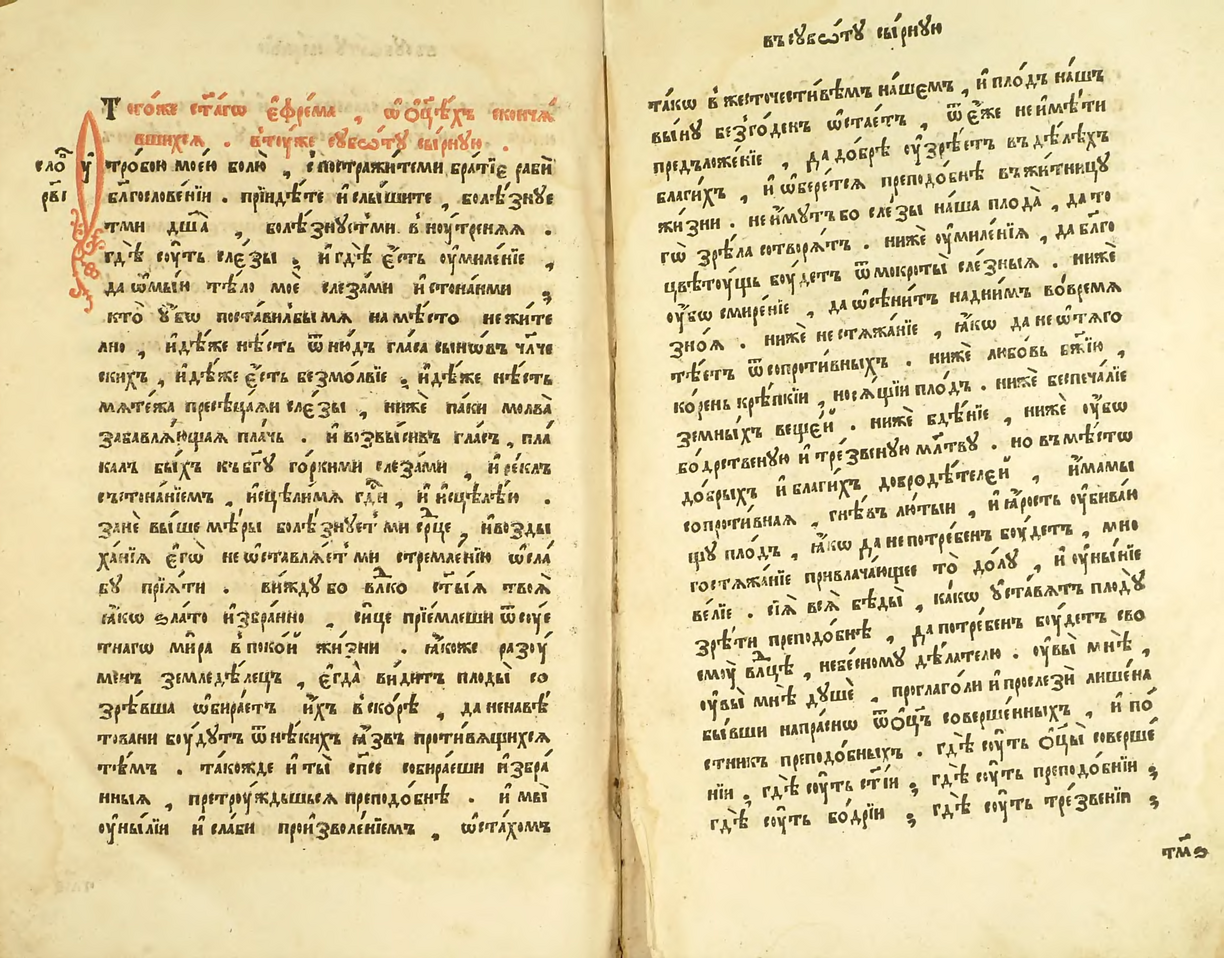 Тогѡ́же ст҃а́гѡ є҆фре́ма , ѡ҆ ѻ҆ц҃ѣ́хъ сконча́
вшихсѧ . в̾ тꙋ́же сꙋбѡ́тꙋ сы́рнꙋю .
сло́
рві
Оу҆тро́бою мое́ю болю̀ , спостражи́те ми бра́тїє рабѝ
бл҃гослове́нїи . прїиди́те и҆ слы́шите , болѣ́знꙋе
тъ ми дш҃а̀ , болѣ́знꙋетъ ми в̾нꙋ́тренѧѧ .
гдѣ̀ сꙋ́ть сле́зы ; и҆ гдѣ̀ є҆́сть оу҆миле́нїе ,
да ѡ҆мы́и тѣ́ло моѐ слеза́ми и҆ стона́нми ;
кто̀ ᲂу҆́бѡ поста́вилъ бы мѧ̀ на мѣ́сто нежите
лно , и҆дѣ́же нѣ́сть ѿню́дъ гла́са сынѡ́въ чл҃че
скихъ , и҆дѣ́же є҆́сть безмо́лвїе , и҆дѣ́же нѣ́сть
мѧте́жа пресѣца́ѧи сле́зы , нижѐ па́ки молва̀
забавлѧ́ющаѧ пла́чь . и҆ возвы́сивъ гла́съ , пла́
калъ бы́хъ къ бг҃ꙋ го́ркими слеза́ми , и҆ ре́клъ
съ стона́нїемъ , и҆сцѣли́ мѧ гд҃и , и҆ и҆сцѣлѣ́ю .
занѐ вы́ше мѣ́ры болѣ́знꙋетъ ми ср҃це , и҆ возды
ха́нїѧ є҆гѡ̀ не ѡ҆ставлѧ́етъ ми стремле́нїю ѡ҆сла́
бꙋ прїѧ́ти . ви́ждꙋ бо вл҃ко ст҃ы́ѧ твоѧ̀
ꙗ҆́кѡ зла́то и҆збра́нно , си́це прїе́млеши ѿ сꙋе
тнагѡ ми́ра в̾ поко́й жи́зни . ꙗ҆́коже разꙋ́
менъ земледѣ́лецъ , є҆гда̀ ви́дитъ плоды̀ со
зрѣ́вша ѡ҆бира́етъ и҆́хъ в̾ско́рѣ , да не навѣ́
товани бꙋ́дꙋтъ ѿ нѣ́кихъ ꙗ҆́звъ проти́вѧщихсѧ
тѣ́мъ . та́кожде и҆ ты̀ сп҃се собира́еши и҆збра́
нныѧ , претрꙋ́ждьшьсѧ преподо́бнѣ . и҆ мы̀
оу҆ны́лїи и҆ сла́би произволе́нїемъ , ѡ҆ста́хомъ
въ сꙋбѡ́тꙋ сы́рнꙋю
та́кѡ в̾ жесточе́стивѣмъ на́шемъ , и҆ пло́дъ на́шъ
вы́нꙋ безго́денъ ѡ҆стае́тъ , ѿ є҆́же не и҆мѣ́ти
предъложе́нїе , да до́брѣ оу҆зрѣ́етъ въ дѣ́лѣхъ
благи́хъ , и҆ ѡ҆бере́тсѧ преподо́бнѣ въ жи́тницꙋ
жи́зни . не и҆́мꙋтъ бо сле́зы на́ша плода̀ , да то
гѡ̀ зрѣ́ла сотворѧ́тъ . нижѐ оу҆миле́нїѧ , да бл҃го
цвѣтꙋ́щь бꙋ́детъ ѿ мокроты̀ сле́зныѧ . нижѐ
оу҆́бѡ смире́нїе , да ѡ҆сѣни́тъ над ни́мъ во́ времѧ
зно́ѧ . нижѐ нестѧжа́нїе , ꙗ҆́кѡ да не ѡ҆тѧго
тѣ́етъ ѿ сопроти́вныхъ . нижѐ любо́вь бж҃їю ,
ко́рень крѣ́пкїи , носѧ́щїи пло́дъ . нижѐ беспеча́лїе
земны́хъ веще́и . нижѐ бдѣ́нїе , нижѐ оу҆́бѡ
бо́дрственꙋю и҆ тре́звенꙋю мл҃твꙋ . но въ мѣ́стѡ
до́брыхъ и҆ благи́хъ добродѣ́телей , и҆́мамы
сопроти́вная , гнѣ́въ лю́тыи , и҆ ꙗ҆́рость оу҆бива́ю
щꙋ пло́дъ , ꙗ҆́кѡ да непотре́бенъ бꙋ́детъ , мно
гостѧжа́нїе привлача́ющее то̀ до́лꙋ , и҆ оу҆ны́нїе
ве́лїе . сїѧ̀ всѧ̀ бѣ́ды̀ , ка́кѡ оу҆ста́вѧтъ плодꙋ̀
зрѣ́ти преподо́бнѣ , да потре́бенъ бꙋ́детъ сво
емꙋ̀ вл҃цѣ , небе́сномꙋ дѣ́лателю . оу҆вы̀ мнѣ̀ ,
оу҆вы̀ мнѣ̀ дꙋшѐ , проглаго́ли и҆ прослезѝ лише́на
бы́вши напра́снѡ ѿ ѻ҆ц҃ъ соверше́нныхъ , и҆ по́
стникъ преподо́бныхъ . гдѣ̀ сꙋ́ть ѻ҆ц҃ы̀ соверше́
нїи , гдѣ̀ сꙋ́ть ст҃і́и ; гдѣ̀ сꙋ́ть преподо́бнїи ;
гдѣ̀ сꙋ́ть бо́дрїи ; гдѣ̀ сꙋ́ть тре́звенїи ;
тм҃ѕ